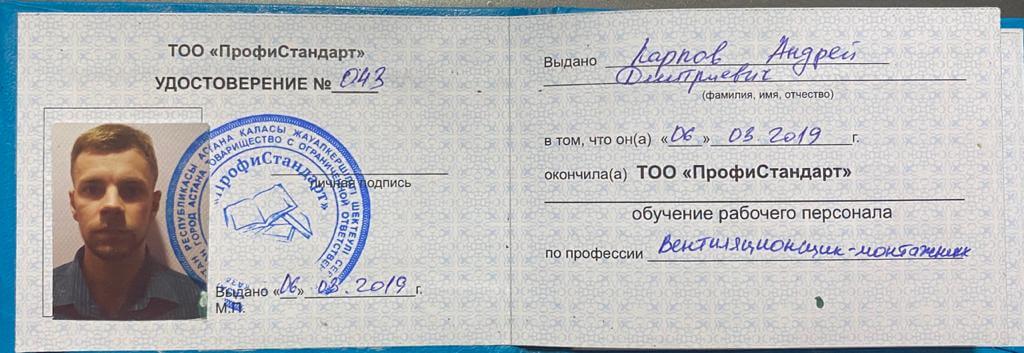 ТОО «ПрофиСтандарт»
УДОСТОВЕРЕНИЕ № 043
РЕСПУБЛИКАСЫ АСТАНА ҚАЛАСЫ ЖАУАПКЕРШІЛІГІ ШЕКТЕУЛІ
ГОРОД АСТАНА ТОВАРИЩЕСТВО С ОГРАНИЧЕННОЙ ОТВЕТСТВЕН
«ПрофиСтандарт»
личная подпись
Выдано «06» 03.2019 г.
М.П.
Выдано Карпов Андрей
Дмитриевич
(фамилия, имя, отчество)
в том, что он(а) «06» 03.2019 г.
окончила(а) ТОО «ПрофиСтандарт»
обучение рабочего персонала
по профессии Вентиляционщик-монтажник